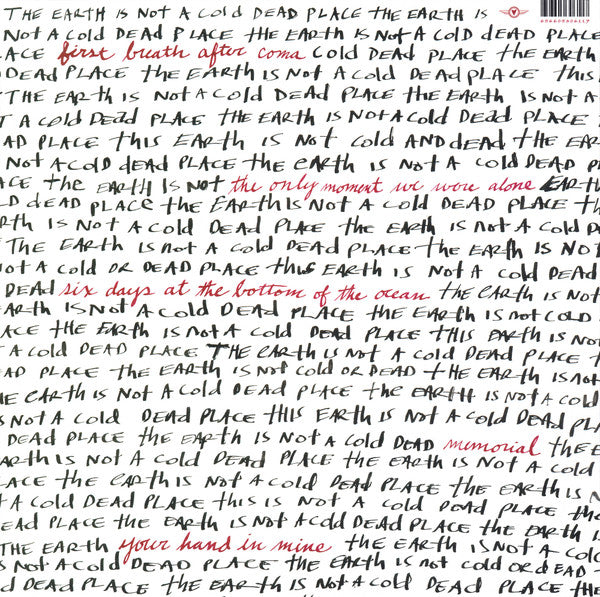 THE EARTH IS NOT A COLD DEAD PLACE THE EARTH IS
NOT A COLD DEAD PLACE THE EARTH IS NOT A COLD DEAD PLACE
ACE first breath after coma COLD DEAD PLACE THE EARTH
DEAD PLACE THE EARTH IS NOT A COLD DEAD PLACE THIS
THE EARTH IS NOT A COLD DEAD PLACE THE EARTH IS NOT A
T A COLD DEAD PLACE THE EARTH IS NOT A COLD DEAD PLACE
AD PLACE THIS EARTH IS NOT COLD AND DEAD THE EAR
NOT A COLD DEAD PLACE THE EARTH IS NOT A COLD DEAD P
ACE THE EARTH IS NOT the only moment we were alone EARTH
D DEAD PLACE THE EARTH IS NOT A COLD DEAD PLACE THIS
RTH IS NOT A COLD DEAD PLACE THE EARTH IS NOT A COLD
THE EARTH IS NOT A COLD DEAD PLACE THE EARTH IS NO
NOT A COLD OR DEAD PLACE THIS EARTH IS NOT A COLD DEAD
DEAD six days at the bottom of the ocean THE EARTH IS NOT
ARTH IS NOT A COLD DEAD PLACE THE EARTH IS NOT COLD
ACE THE EARTH IS NOT A COLD DEAD PLACE THIS EARTH IS NO
T A COLD DEAD PLACE THE EARTH IS NOT A COLD DEAD PLACE T
AD PLACE THE EARTH IS NOT COLD OR DEAD THE EARTH IS NOT
HE EARTH IS NOT A COLD DEAD PLACE THE EARTH IS NOT A COLD
S NOT A COLD DEAD PLACE THIS EARTH IS NOT A COLD DEAD PL
DEAD PLACE THE EARTH IS NOT A COLD DEAD memorial THE E
ARTH IS NOT A COLD DEAD PLACE THE EARTH IS NOT A COLD
ACE THE EARTH IS NOT A COLD DEAD PLACE THE EARTH IS N
T A COLD DEAD PLACE THIS IS NOT A COLD DEAD PLACE THE
DEAD PLACE THE EARTH IS NOT A COLD DEAD PLACE THE EARTH IS
THE EARTH your hand in mine THE EARTH IS NOT A COLD
D DEAD PLACE THE EARTH IS NOT A COLD DEAD PLACE THE EARTH IS NOT COLD OR DEAD TH